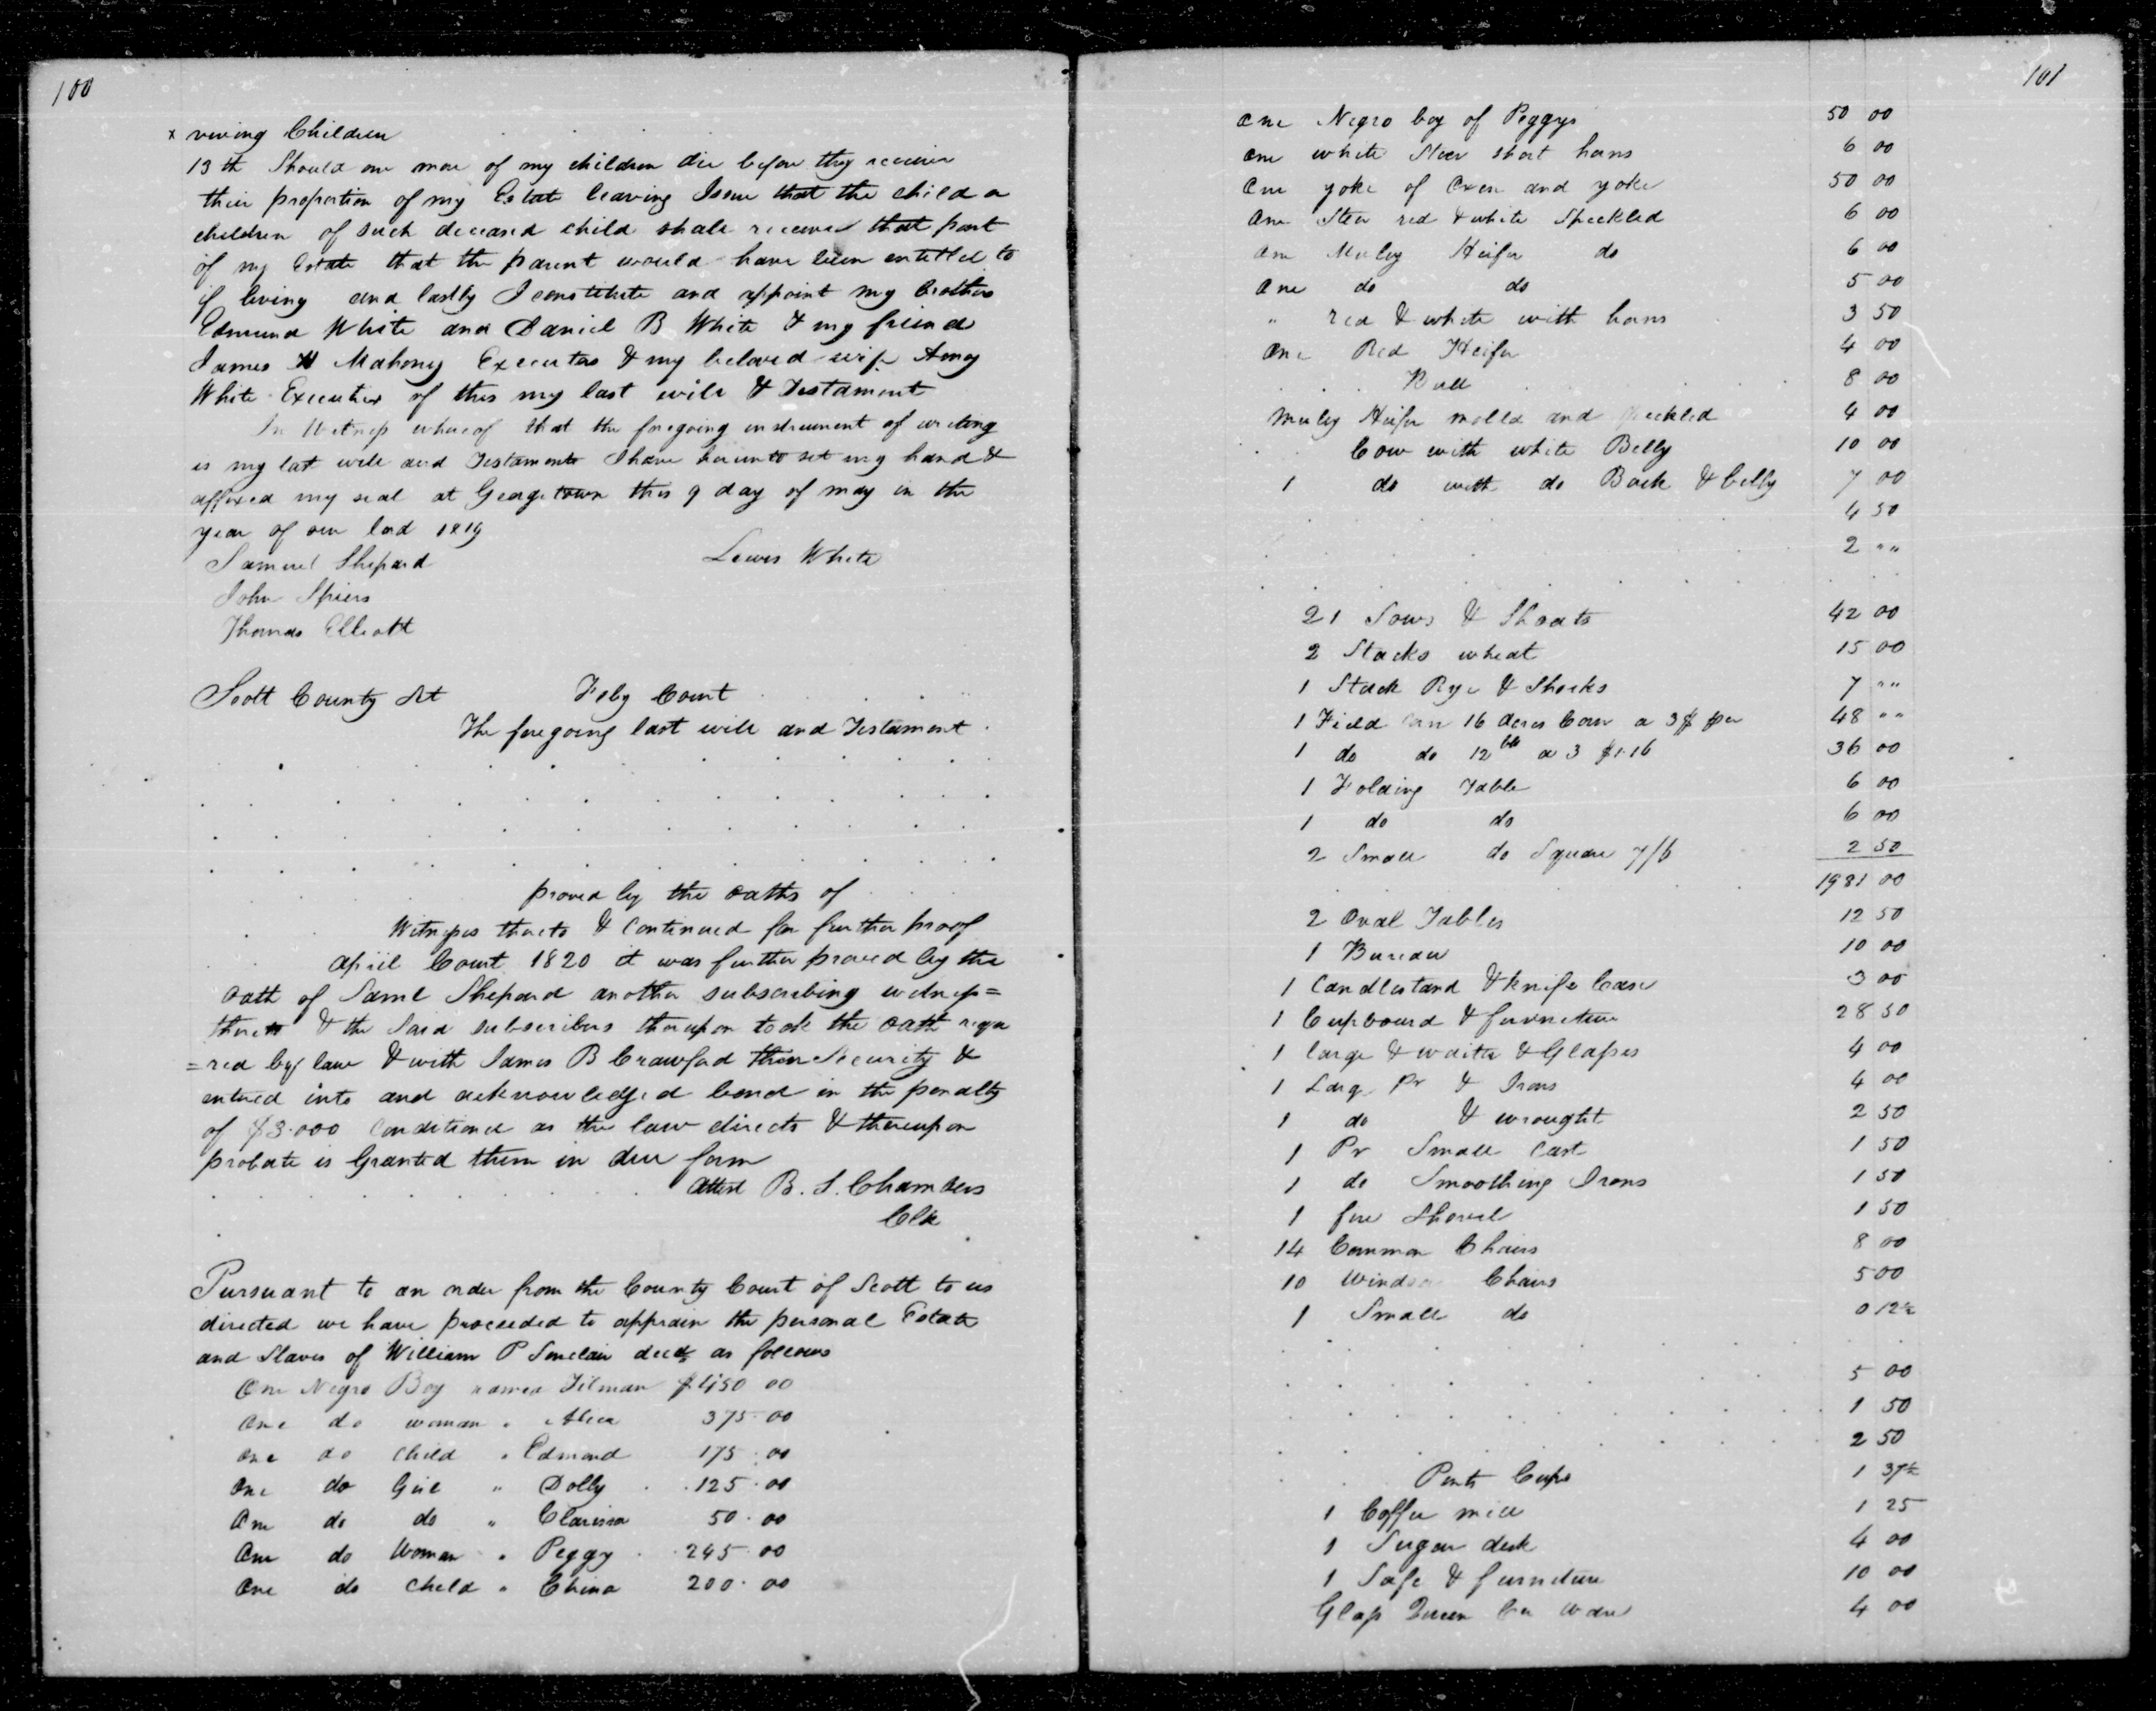 100
x viving Children
13th Should one more of my children die before they receive
their proportion of my Estate leaving Issue that the child or
children of such deceased child shall receive that part
of my Estate that the parent would have been entitled to
if living and lastly I constitute and appoint my brothers
Edmund White and Daniel B White & my friend
James Mahony Executors & my beloved wife Amey
White Executrix of this my last will & Testament
In Witness whereof that the foregoing instrument of writing
is my last will and Testament I have hereunto set my hand &
affixed my seal at Georgetown this 9 day of may in the
year of our lord 1819
Samuel Shepard Lewis White
John Spiers
Thomas Elliott
Scott County Sct Feby Court
The foregoing last will and Testament
proved by the oaths of
Witnesses thereto & continued for further proof
april Court 1820 it was further proved by the
oath of Saml Shepard another subscribing witness=
thereto & the said subscribers thereupon took the oath requ
=red by law & with James B Crawford their Security &
entered into and acknowledged bond in the penalty
of $3.000 conditioned as the law directs & thereupon
probate is Granted them in due form
Attest B. S. Chambers
Clk
Pursuant to an order from the County Court of Scott to us
directed we have proceeded to appraise the personal Estate
and Slaves of William P Sinclair decd as follows
One Negro Boy named Tilman $450 00
One do woman " 375.00
One do child " Edmond 175.00
One do Girl " Dolly 125.00
One do do " Clarissa 50.00
One do Woman " Peggy 245.00
One do child " China 200.00
101
One Negro boy of Peggys 50 00
One white Steer short horns 6 00
One yoke of Oxen and yoke 50 00
One Steer red & white Speckled 6 00
One Muley Heifer do 6 00
One do do 5 00
" red & white with horns 3 50
One Red Heifer 4 00
Bull 8 00
Muley Heifer and 4 00
Cow with white Belly 10 00
1 do with do Back & belly 7 00
4 50
2 " "
21 Sows & Shoats 42 00
2 Stacks wheat 15 00
1 Stack Rye & Shocks 7 " "
1 Field 16 acres Corn a 3$ per 48 " "
1 do do 12 a 3 $1.16 36 00
1 Folding Table 6 00
1 do do 6 00
2 Small do Square 7/6 2 50
1981 00
2 Oval Tables 12 50
1 Bureau 10 00
1 Candlestand & knife Case 3 00
1 Cupboard & furniture 28 50
1 large & waiter & Glasses 4 00
1 Larg Pr & Irons 4 00
1 do & wrought 2 50
1 Pr Small Cast 1 50
1 do Smoothing Irons 1 50
1 fire Shovel 1 50
14 Common Chairs 8 00
10 Windsor Chairs 5 00
1 Small do 0 12½
5 00
1 50
2 50
Cups 1 37½
1 Coffee mill 1 25
1 Sugar desk 4 00
1 Safe & furniture 10 00
Glass Queen ware 4 00